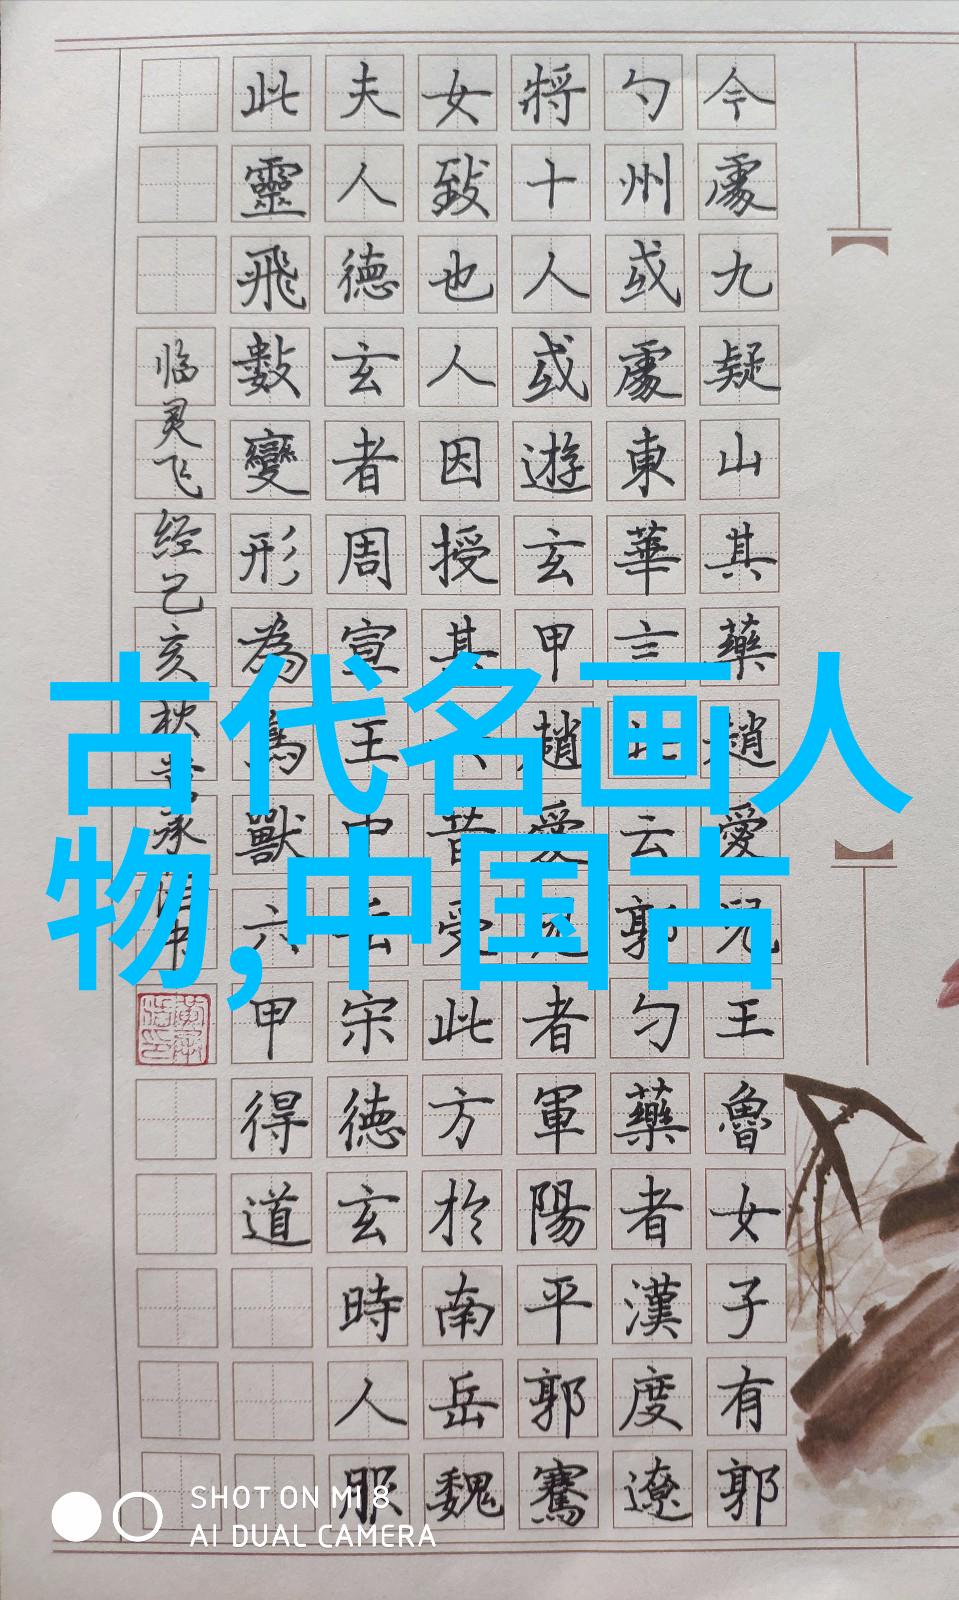 今處九疑山其藥趙愛兒王魯女子有郭
勺州或處東華言此云郭勺藥者漢度遼
將十人或遊玄甲趙愛兒者軍陽平郭騫
女致也人因授其昔受此方於南岳魏
夫人德玄者周宣王中岳宋德玄時人服
此靈飛數變形為鳥獸六甲得道
临灵飞经己亥秋承
古代名画人
物,中国古
SHOT ON MI 8
AI DUAL CAMERA